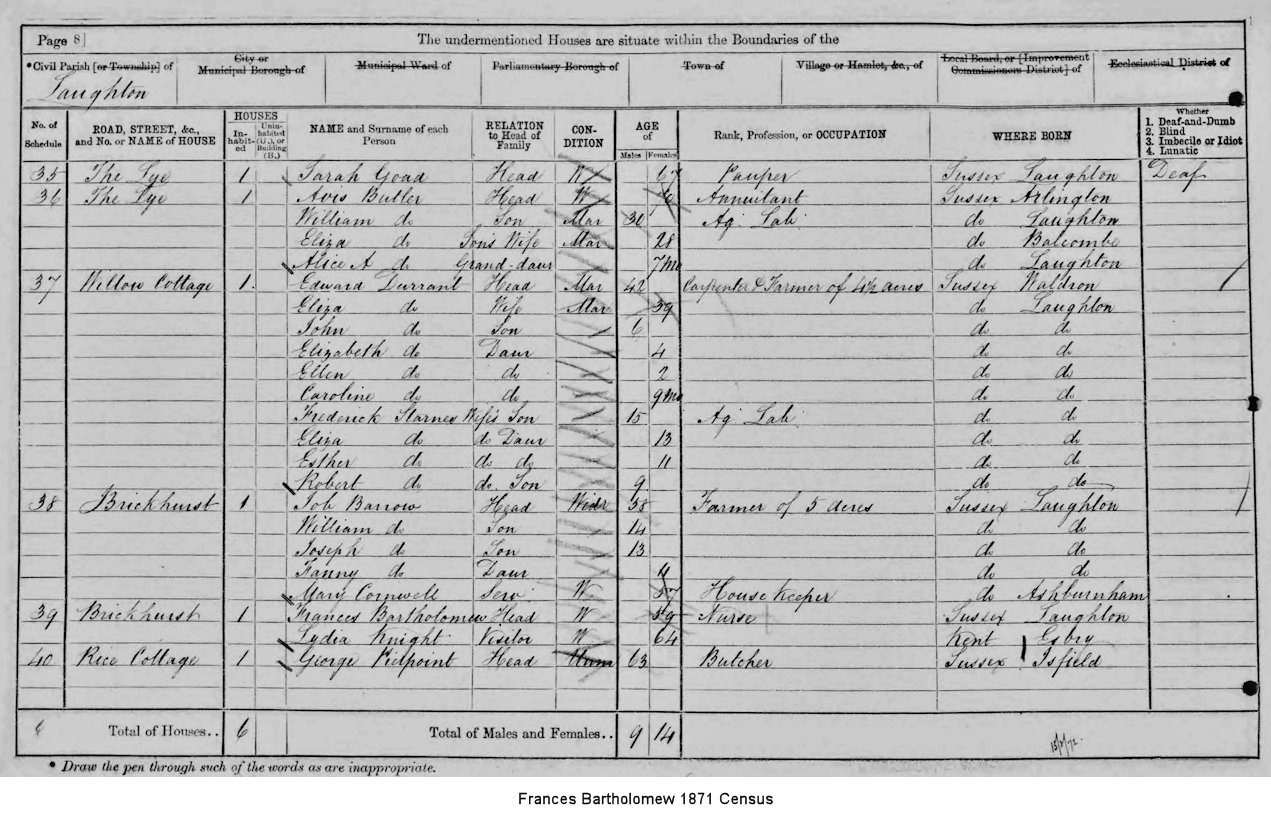 Page 8]
The undermentioned Houses are situate within the Boundaries of the
*Civil Parish [or Township] of City or Municipal Borough of Municipal Ward of Parliamentary Borough of Town of Village or Hamlet, &c., of Local Board, or [Improvement Commissioners District] of Ecclesiastical District of
Laughton
No. of Schedule ROAD, STREET, &c., and No. or NAME of HOUSE HOUSES In-habit-ed Unin-habited (U.), or Building (B.) NAME and Surname of each Person RELATION to Head of Family CON-DITION AGE of Males Females Rank, Profession, or OCCUPATION WHERE BORN Whether 1. Deaf-and-Dumb 2. Blind 3. Imbecile or Idiot 4. Lunatic
35 The Lye 1 Sarah Goad Head W 67 Pauper Sussex Laughton Deaf
36 The Lye 1 Avis Butler Head W Annuitant Sussex Arlington
William do Son Mar 30 Ag. Lab. do Laughton
Eliza do Son's Wife Mar 28 do Balcombe
Alice A do Grand-daur 7 Mo do Laughton
37 Willow Cottage 1 Edward Durrant Head Mar 42 Carpenter & Farmer of 4½ acres Sussex Waldron
Eliza do Wife Mar 39 do Laughton
John do Son 6 do do
Elizabeth do Daur 4 do do
Ellen do do 2 do do
Caroline do do 9 Mo do do
Frederick Starnes Wife's Son 15 Ag. Lab. do do
Eliza do do Daur 13 do do
Esther do do do 11 do do
Robert do do Son 9 do do
38 Brickhurst 1 Job Barrow Head Widr 38 Farmer of 5 acres Sussex Laughton
William do Son 14 do do
Joseph do Son 13 do do
Fanny do Daur 11 do do
Mary Cornwell Serv W 57 House Keeper do Ashburnham
39 Brickhurst 1 Frances Bartholomew Head W 59 Nurse Sussex Laughton
Lydia Knight Visitor W 64 Kent Esbry
40 Rice Cottage 1 George Pielpoint Head Unm 63 Butcher Sussex Isfield
6 Total of Houses.. 6 Total of Males and Females.. 9 14
* Draw the pen through such of the words as are inappropriate.
Frances Bartholomew 1871 Census